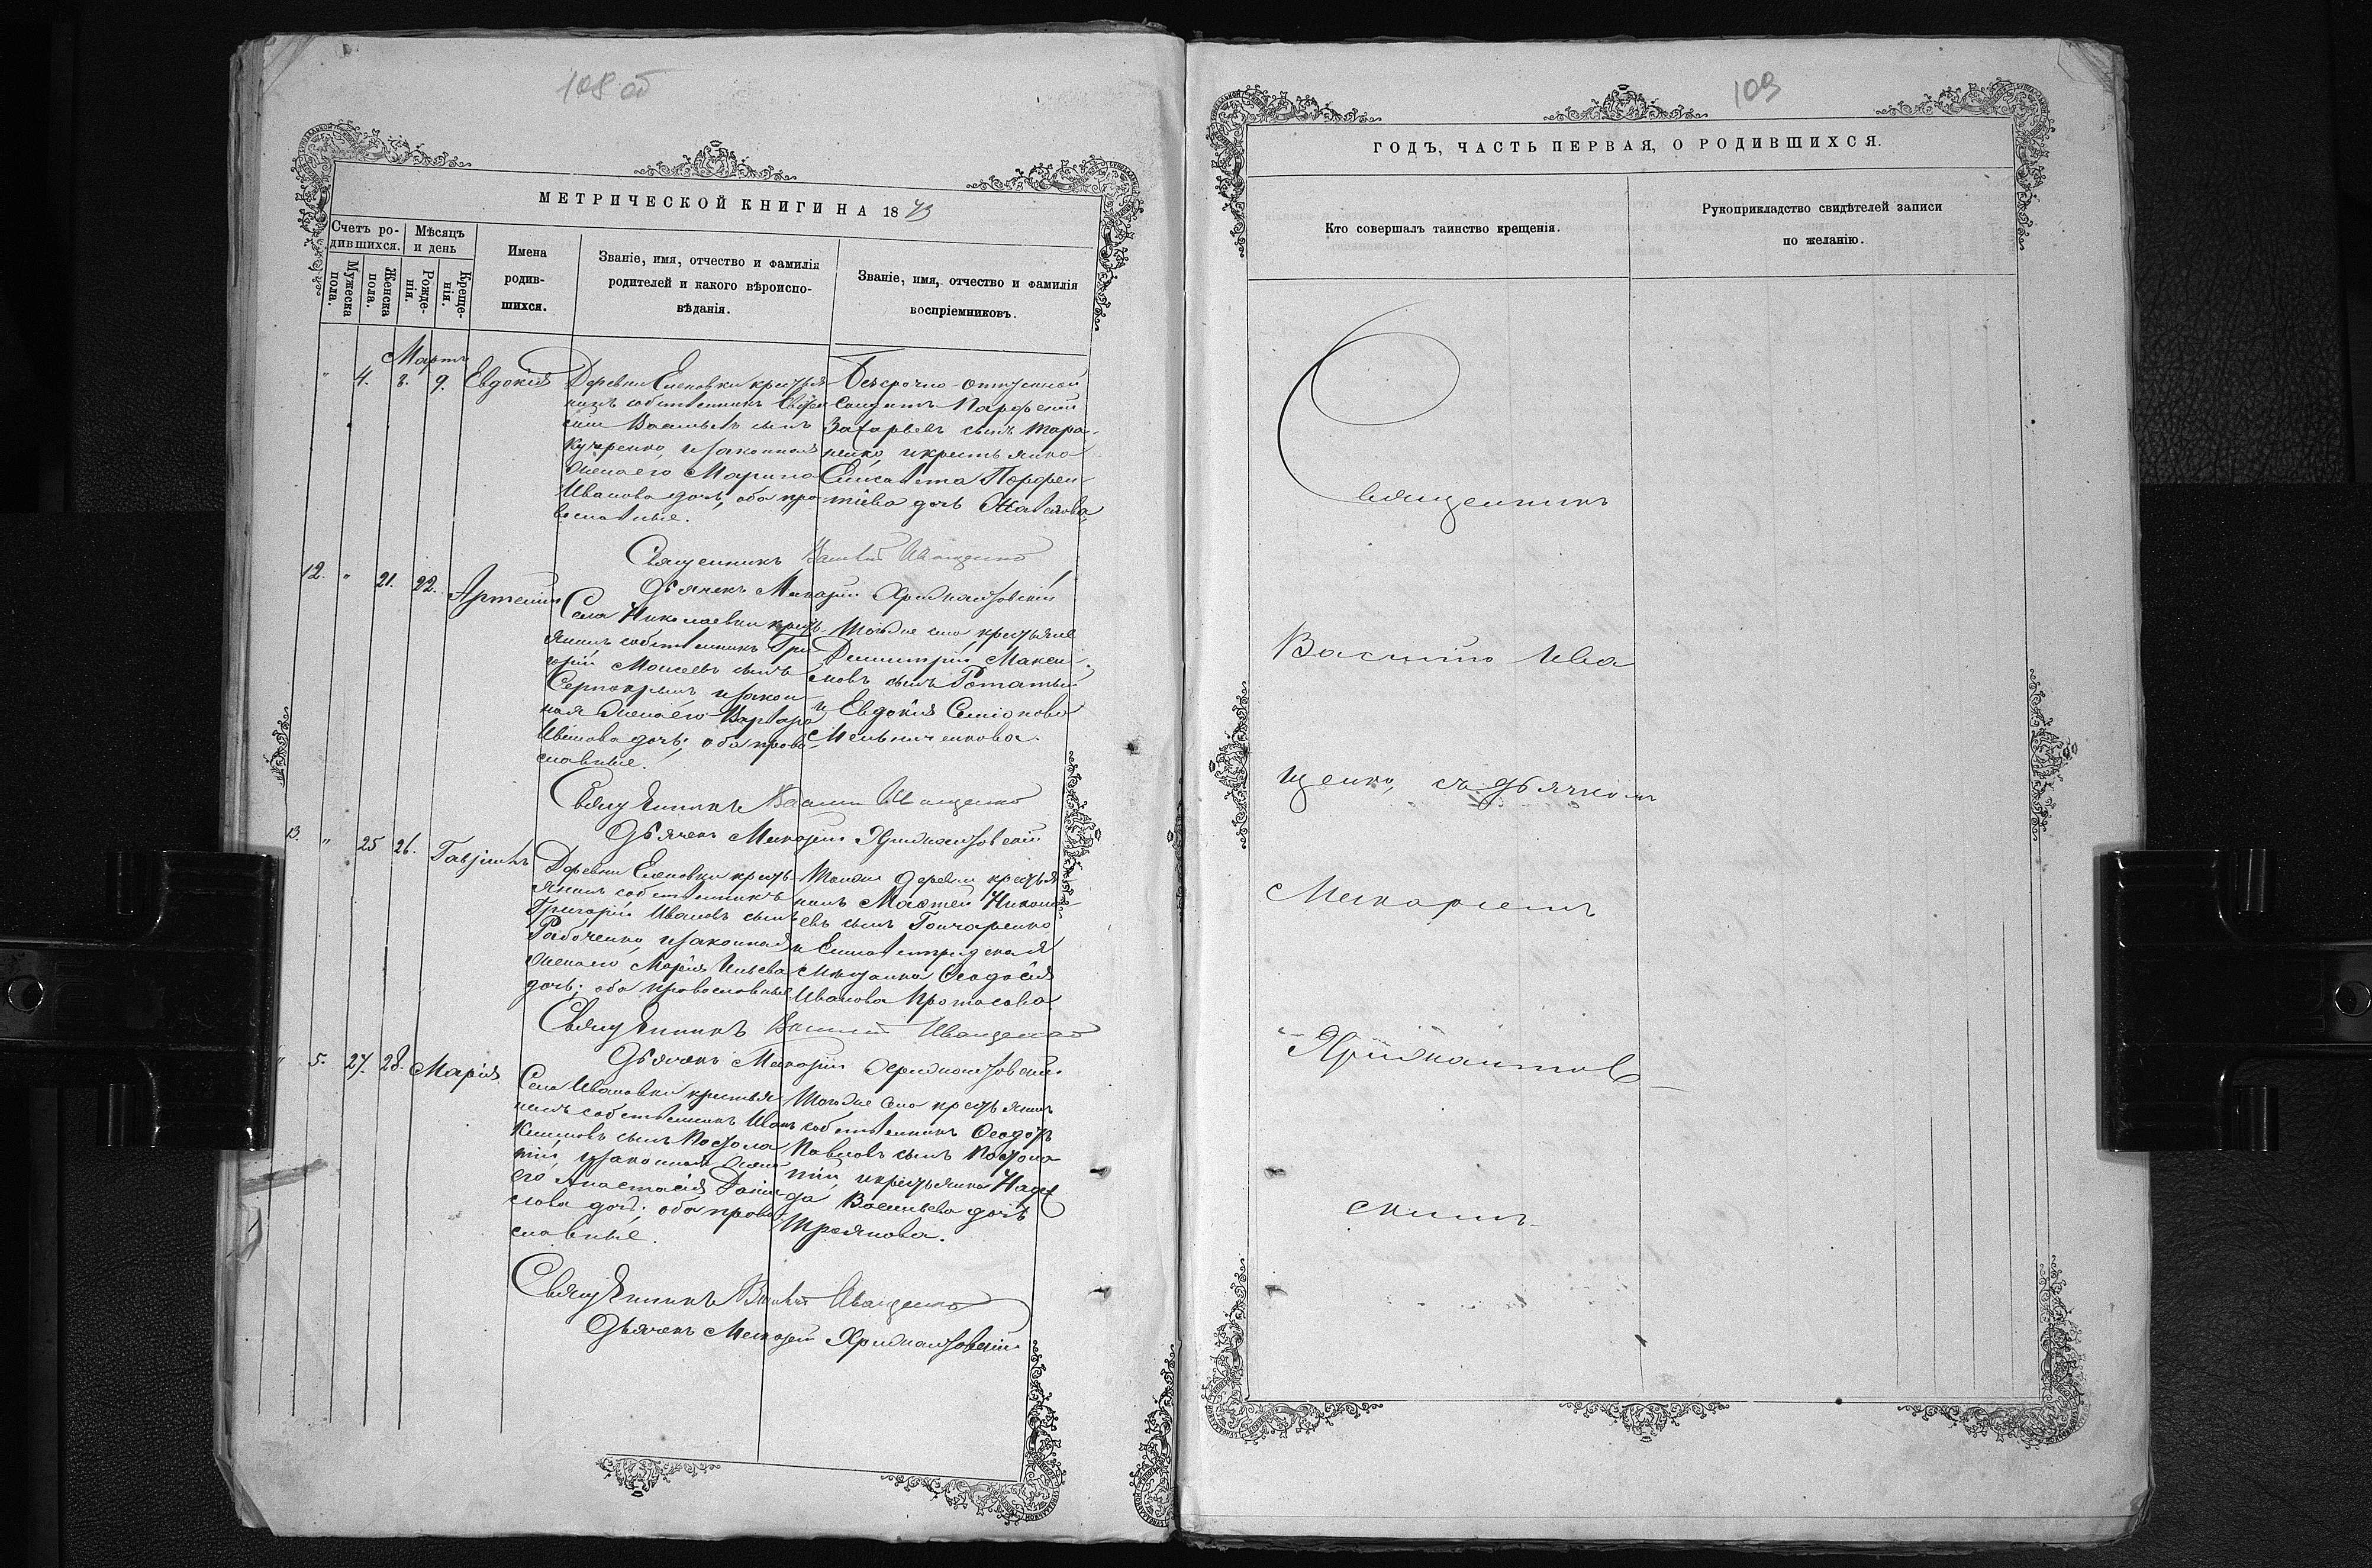 108 об
МЕТРИЧЕСКОЙ КНИГИ НА 1873
Счетъ ро-
дившихся.
Мѣсяцъ
и день
Мужеска
пола.
Женска
пола.
Рожде-
нія.
Креще-
нія.
Имена
родив-
шихся.
Званіе, имя, отчество и фамилія
родителей и какого вѣроиспо-
вѣданія.
Званіе, имя, отчество и фамилія
воспріемниковъ.
Мартъ
" 4. 8. 9. Евдокія
Деревни Еленовки крестья
нинъ собственникъ
Васильевъ сынъ
Кучеренко, и законная
жена его Марина
Иванова дочь, оба пра-
вославные.
Безсрочно-отпускной
Солдатъ Парфеній
Захарьевъ сынъ Тара-
ненко, и крестьянка
Елисавета Парфен-
тіева дочь
Священникъ Василій Иващенко
Дьячекъ Макарій Хрисанфовскій
12. " 21. 22. Артемій
Села Николаевки кресть-
янинъ собственникъ Гри
горій Моисеевъ сынъ
и закон-
ная жена его Варвара
Иванова дочь; оба право-
славные.
Тогоже села крестьяне
Димитрій Макси-
мовъ сынъ Рогатый
и Евдокія Семіонова
Мельниченкова.
Священникъ Василій Иващенко
Дьячекъ Макарій Хрисанфовскій
13. " 25 26. Гавріилъ
Деревни Еленовки кресть-
янинъ собственникъ
Григорій Ивановъ сынъ
Рябоченко, и законная
жена его Марія Ильева
дочь; оба православные
Тойже деревни крестья
нинъ Матѳей Никола-
евъ сынъ Гончаренко
и Елисаветградская
мѣщанка Ѳеодосія
Иванова Протасова
Священникъ Василій Иващенко
Дьячекъ Макарій Хрисанфовскій
" 5. 27. 28. Марія
Села Ивановки крестья
нинъ собственникъ Иванъ
Климовъ сынъ Постола
тій, и законная жена
его Анастасія Дани
лова дочь; оба право
славные.
Тогоже села крестьянинъ
собственникъ Ѳеодотъ
Павловъ сынъ Постола
тій, и крестьянка Надеж
да Васильева дочь
Троянова.
Священникъ Василій Иващенко
Дьячекъ Макарій Хрисанфовскій
109
ГОДЪ, ЧАСТЬ ПЕРВАЯ, О РОДИВШИХСЯ.
Кто совершалъ таинство крещенія.
Рукоприкладство свидѣтелей записи
по желанію.
Священникъ
Василій Ива
щенко, съ дьячкомъ
Макаріемъ
Хрисанфов-
скимъ